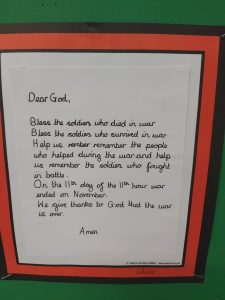 Dear God,
Bless the soldiers who died in war
Bless the soldiers who survived in war
Help us rember remember the people
who helped during the war and help
us remember the soldiers who fought
in battle.
On the 11th day of the 11th hour war
ended on November.
We give thanks to God that the war
is over.
Amen